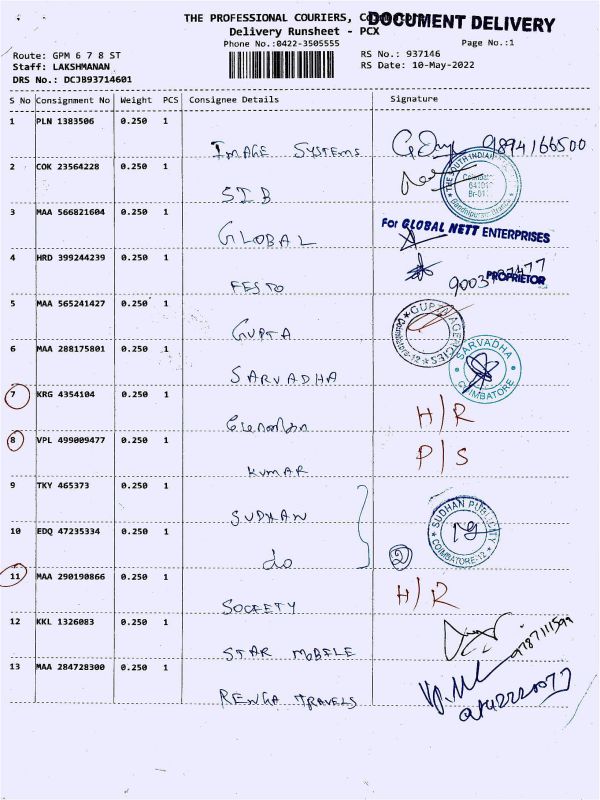 THE PROFESSIONAL COURIERS,
DOCUMENT DELIVERY
Delivery Runsheet - PCX
Phone No.:0422-3505555
Page No.:1
Route: GPM 6 7 8 ST
Staff: LAKSHMANAN
DRS No.: DCJB93714601
RS No.: 937146
RS Date: 10-May-2022
S No Consignment No Weight PCS Consignee Details Signature
1 PLN 1383506 0.250 1
IMAGE SYSTEMS 9894166500
2 COK 23564228 0.250 1
SIB
THE SOUTH INDIAN
3 MAA 566821604 0.250 1
GLOBAL
For GLOBAL NETT ENTERPRISES
4 HRD 399244239 0.250 1
FESTO
PROPRIETOR
5 MAA 565241427 0.250 1
GUPTA
GUPTA AGENCIES Coimbatore-12
6 MAA 288175801 0.250 1
SARVADHA
SARVADHA COIMBATORE
7 KRG 4354104 0.250 1
H/R
8 VPL 499009477 0.250 1
KUMAR
P/S
9 TKY 465373 0.250 1
SUDHAN
SUDHAN PUBLICITY COIMBATORE-12
10 EDQ 47235334 0.250 1
do
2
11 MAA 290190866 0.250 1
SOCIETY
H/R
12 KKL 1326083 0.250 1
STAR MOBILE
9787111599
13 MAA 284728300 0.250 1
RENGA TRAVELS